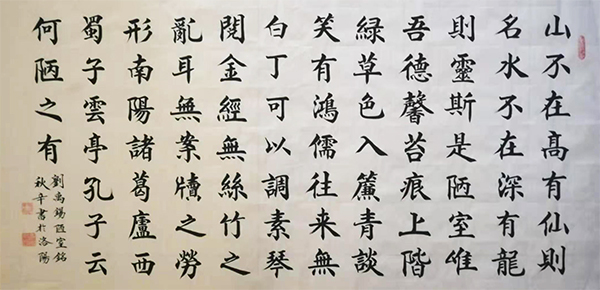 山不在高有仙則
名水不在深有龍
則靈斯是陋室唯
吾德馨苔痕上階
綠草色入簾青談
笑有鴻儒往来無
白丁可以調素琴
閱金經無絲竹之
亂耳無案牘之勞
形南陽諸葛廬西
蜀子雲亭孔子云
何陋之有
劉禹錫陋室銘
秋辛書於洛陽